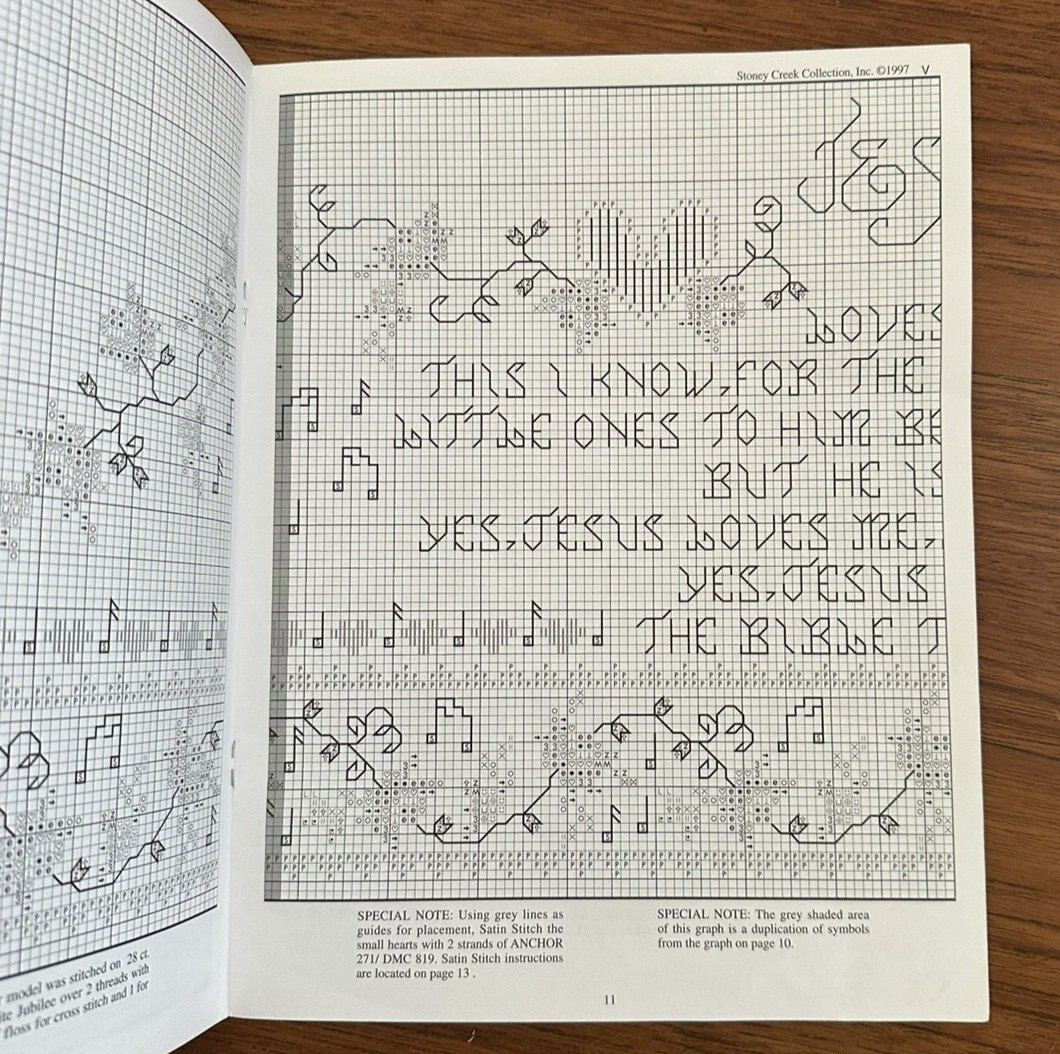 Stoney Creek Collection, Inc. ©1997
JES
LOVES
THIS I KNOW, FOR THE
LITTLE ONES TO HIM BE
BUT HE IS
YES, JESUS LOVES ME,
YES, JESUS
THE BIBLE T
SPECIAL NOTE: Using grey lines as
guides for placement, Satin Stitch the
small hearts with 2 strands of ANCHOR
271/ DMC 819. Satin Stitch instructions
are located on page 13 .
SPECIAL NOTE: The grey shaded area
of this graph is a duplication of symbols
from the graph on page 10.
11
model was stitched on 28 ct.
Jubilee over 2 threads with
floss for cross stitch and 1 for